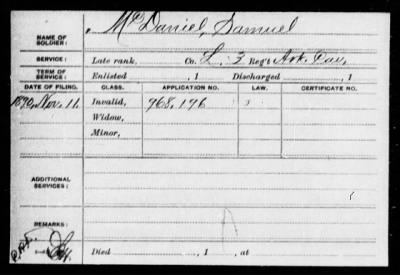 McDaniel, Samuel
NAME OF SOLDIER:
SERVICE: Late rank, Co. L. 3 Reg't Ark. Cav,
TERM OF SERVICE: Enlisted , 1 Discharged , 1
DATE OF FILING. CLASS. APPLICATION NO. LAW. CERTIFICATE NO.
1890, Nov. 11. Invalid, 968,196
Widow,
Minor,
ADDITIONAL SERVICES:
REMARKS:
Died , 1 , at